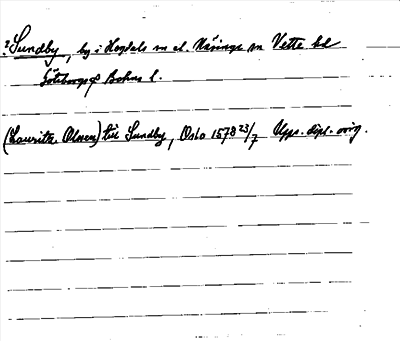 ? Sundby, by i Hogdals sn el. Närings sn Vette hd
Göteborgs o Bohus l.
(Lauritz Olsen) till Sundby, Oslo 1578 23/7 Upps. dipl. orig.